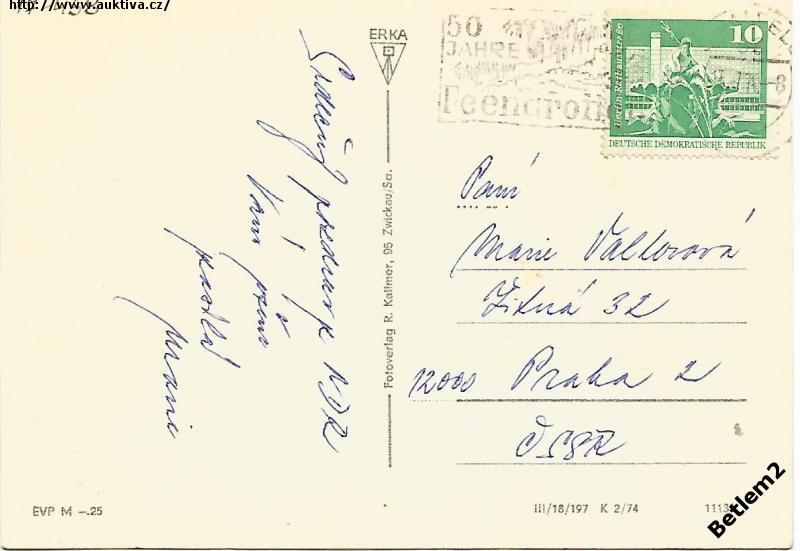 www.auktiva.cz/
ERKA
50
JAHRE
Feengrotten
10
Berlin-Rathausstraße
DEUTSCHE DEMOKRATISCHE REPUBLIK
Srdečný pozdrav z NDR
Vám
posílá
Fotoverlag R. Kallmer, 95 Zwickau/Sa.
Paní
Marie Valterová
Žitná 32
12000 Praha 2
ČSSR
EVP M -.25
III/18/197 K 2/74
Betlem2